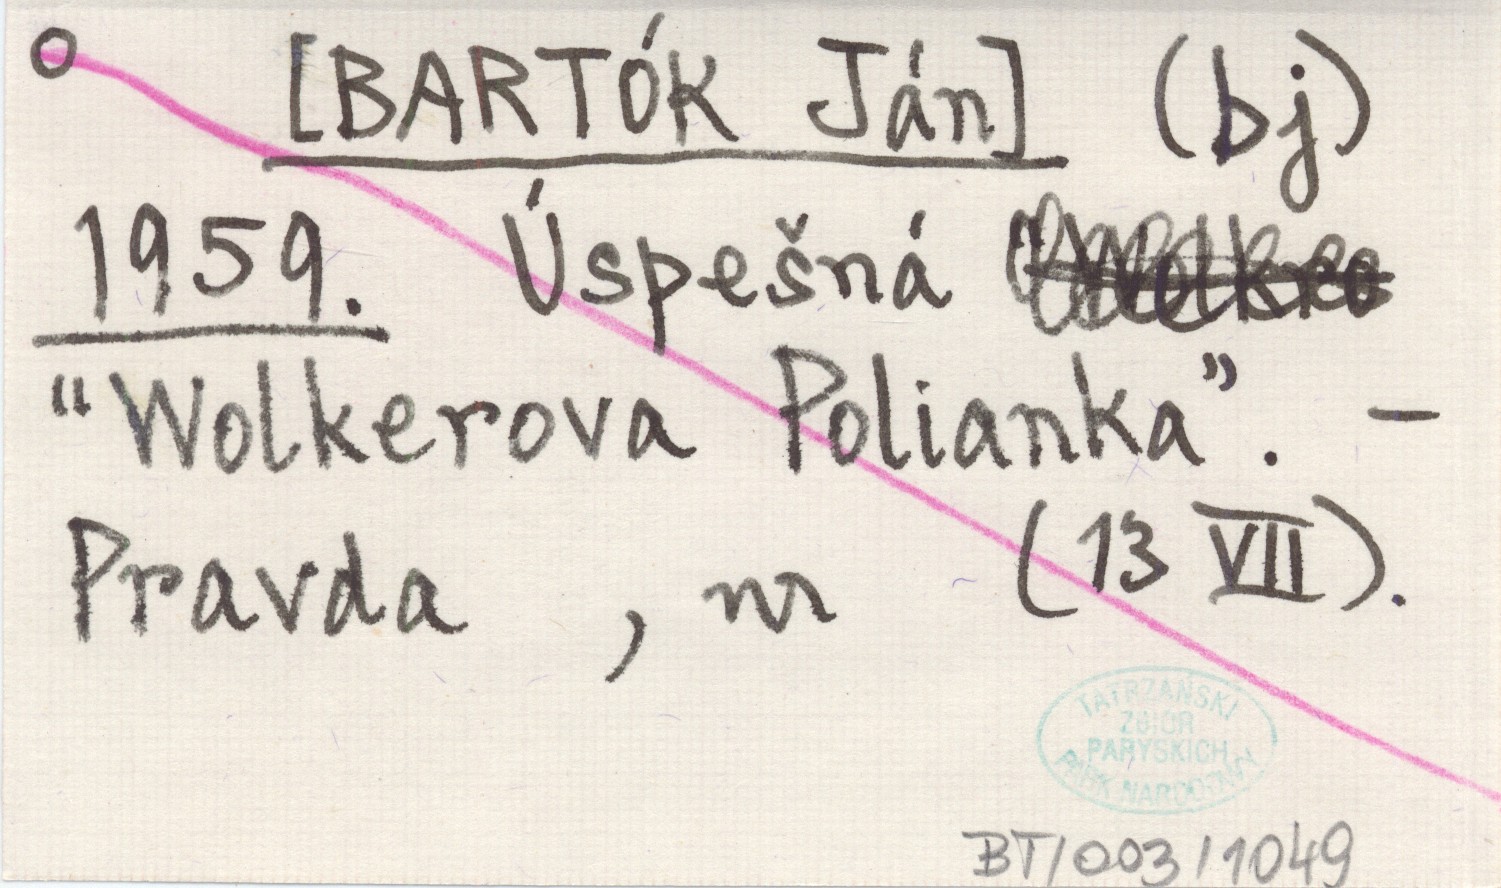 [BARTÓK Ján] (bj)
1959. Úspešná
"Wolkerova Polianka". –
Pravda , nr (13 VII).
TATRZAŃSKI
ZBIÓR
PARYSKICH
PARK NARODOWY
BT/003/1049